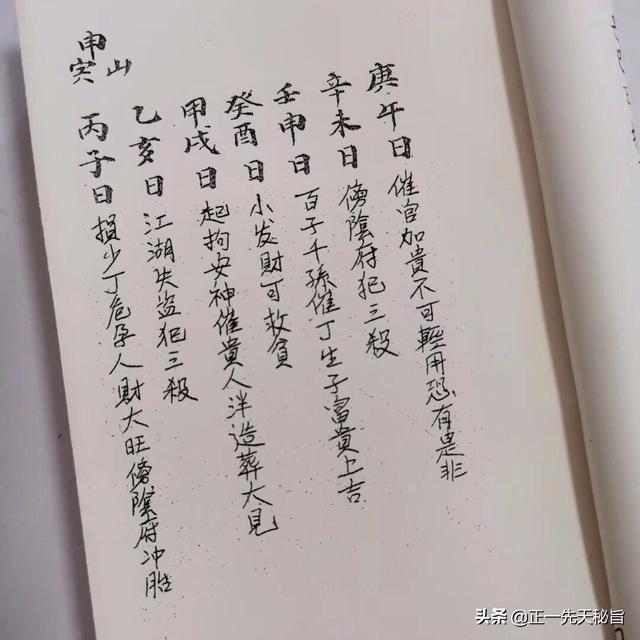 庚午日 催官加貴不可輕用恐有是非
辛未日 傍陰府犯三殺
壬申日 百子千孫催丁生子富貴上吉
癸酉日 小发財可救貧
甲戌日 起拘安神催貴人泮造葬大見
乙亥日 江湖失盜犯三殺
丙子日 損少丁危孕人財大旺傍陰府冲胎
申寅山
头条 @正一先天秘旨